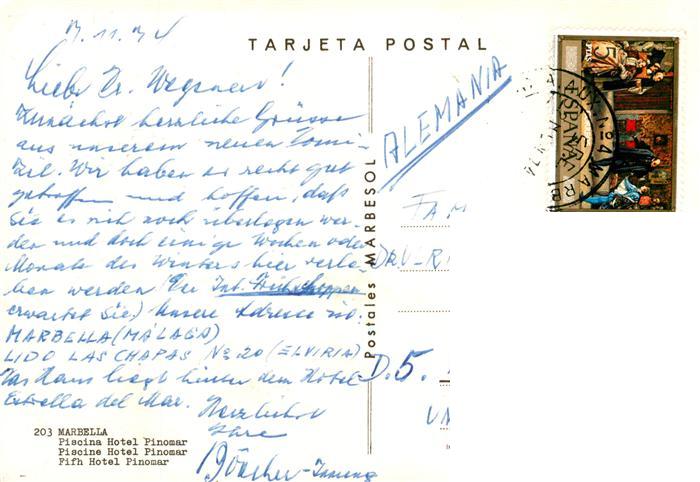 TARJETA POSTAL
Liebe Dr. Wegener!
Zunächst herzliche Grüsse
aus unserem neuen Domi-
zil. Wir haben es recht gut
getroffen und hoffen, daß
Sie es sich noch überlegen wer-
den und doch einige Wochen oder
Monate des Winters hier verle-
ben werden (der Int. Frühschoppen
erwartet Sie) Unsere Adresse ist:
MARBELLA (MÁLAGA)
LIDO LAS CHAPAS No 20 (ELVIRIA)
Das Haus liegt hinter dem Hotel
Estrella del Mar.
Herzlichst
Ihre
203 MARBELLA
Piscina Hotel Pinomar
Piscine Hotel Pinomar
Fifh Hotel Pinomar
Postales MARBESOL
ALEMANIA
FAM
D. 5.
ESPAÑA
5